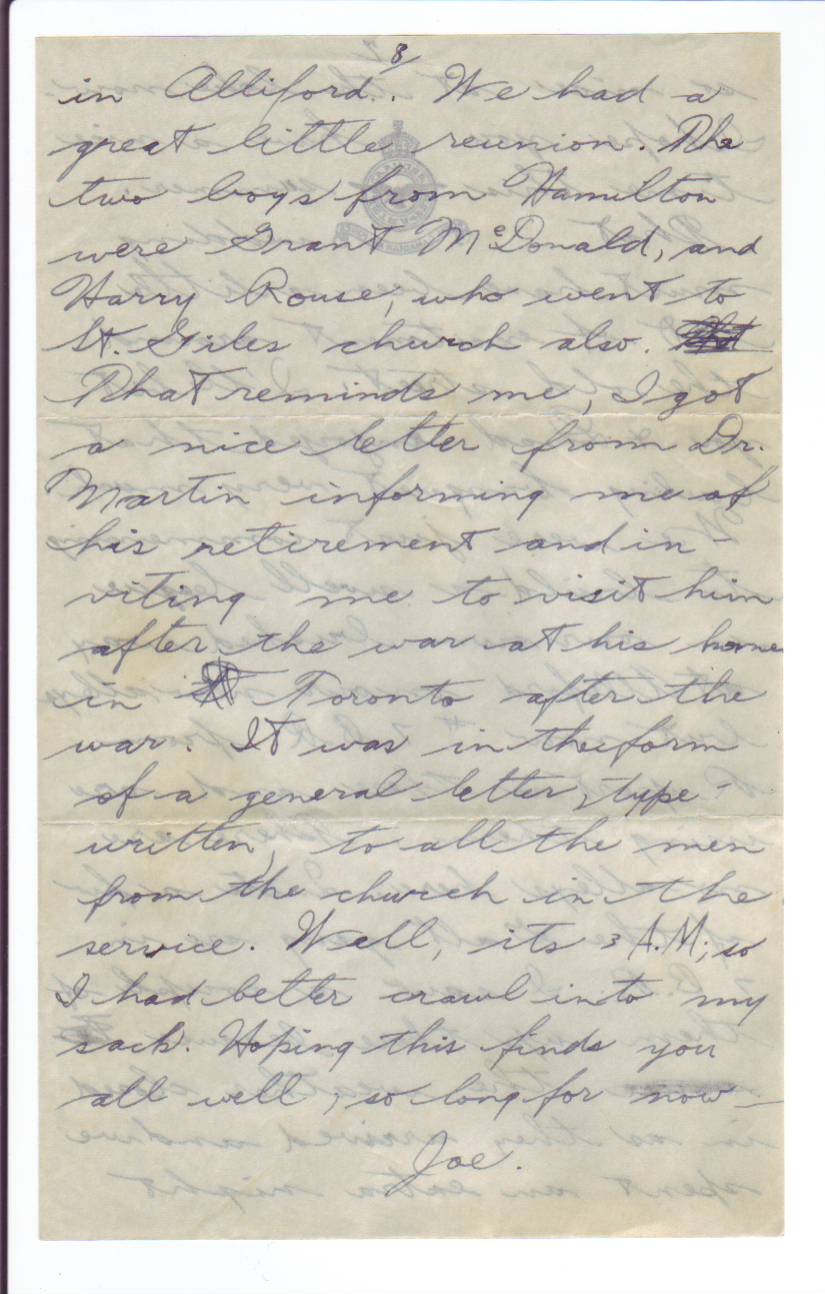 8
in Alliford. We had a
great little reunion. The
two boys from Hamilton
were Grant McDonald, and
Harry Rouse, who went to
St. Giles church also.
That reminds me, I got
a nice letter from Dr.
Martin informing me of
his retirement and in-
viting me to visit him
after the war at his home
in Toronto after the
war. It was in the form
of a general letter, type-
written, to all the men
from the church in the
service. Well, its 3 A.M; so
I had better crawl into my
sack. Hoping this finds you
all well, so long for now—
Joe.